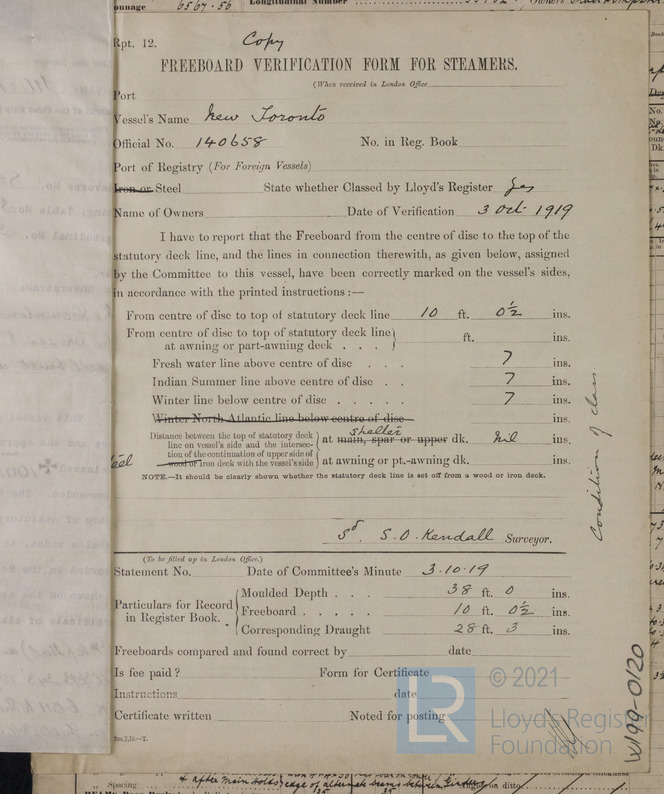 Rpt. 12.
Copy
FREEBOARD VERIFICATION FORM FOR STEAMERS.
(When received in London Office
Port
Vessel's Name New Toronto
Official No. 140658 No. in Reg. Book
Port of Registry (For Foreign Vessels)
Iron or Steel State whether Classed by Lloyd's Register Yes
Name of Owners Date of Verification 3 Oct. 1919
I have to report that the Freeboard from the centre of disc to the top of the
statutory deck line, and the lines in connection therewith, as given below, assigned
by the Committee to this vessel, have been correctly marked on the vessel's sides,
in accordance with the printed instructions :—
From centre of disc to top of statutory deck line 10 ft. 0½ ins.
From centre of disc to top of statutory deck line
at awning or part-awning deck . . . ft. ins.
Fresh water line above centre of disc . . . 7 ins.
Indian Summer line above centre of disc . . 7 ins.
Winter line below centre of disc . . . . . 7 ins.
Winter North Atlantic line below centre of disc ins.
Distance between the top of statutory deck
line on vessel's side and the intersec-
tion of the continuation of upper side of
wood or iron deck with the vessel's side
shelter
at main, spar or upper dk. Nil ins.
at awning or pt.-awning dk. ins.
NOTE.—It should be clearly shown whether the statutory deck line is set off from a wood or iron deck.
Condition of class
Sd. S. O. Kendall Surveyor.
(To be filled up in London Office.)
Statement No. Date of Committee's Minute 3.10.19
Particulars for Record
in Register Book.
Moulded Depth . . . 38 ft. 0 ins.
Freeboard . . . . . 10 ft. 0½ ins.
Corresponding Draught 28 ft. 3 ins.
Freeboards compared and found correct by date
Is fee paid? Form for Certificate
Instructions date
Certificate written Noted for posting
W199-0120
LR
© 2021
Lloyd's Register
Foundation